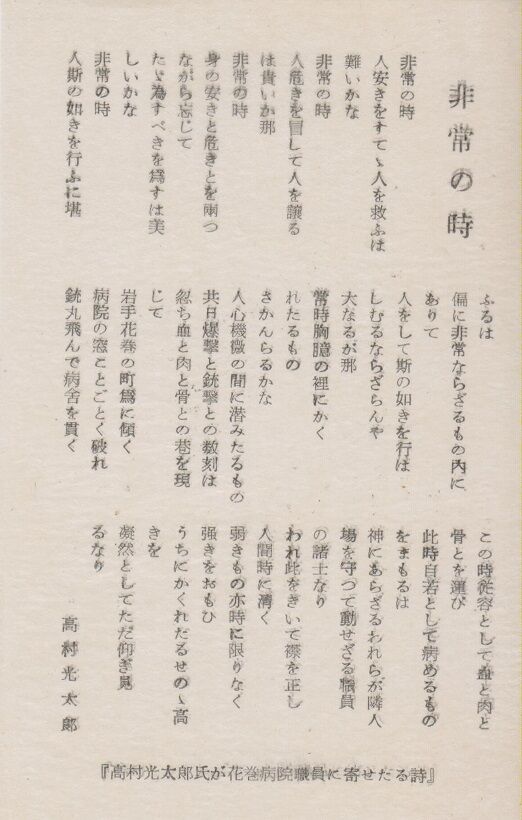 非常の時
非常の時
人安きをすてゝ人を救ふは
難いかな
非常の時
人危きを冒して人を護る
は貴いか那
非常の時
身の安きと危きとを両つ
ながら忘じて
たゞ為すべきを為すは美
しいかな
非常の時
人斯の如きを行ふに堪
ふるは
偏に非常ならざるもの内に
ありて
人をして斯の如きを行は
しむるならざらんや
大なるが那
常時胸臆の裡にかく
れたるもの
さかんらるかな
人心機微の間に潜みたるもの
共日爆撃と銃撃との数刻は
忽ち血と肉と骨との巷を現
じて
岩手花巻の町為に傾く
病院の窓ことごとく破れ
銃丸飛んで病舎を貫く
この時従容として血と肉と
骨とを運び
此時自若として病めるもの
をまもるは
神にあらざるわれらが隣人
場を守つて動ぜざる職員
の諸士なり
われ此をきいて襟を正し
人間時に清く
弱きもの亦時に限りなく
強きをおもひ
うちにかくれたるせのゝ高
きを
凝然としてただ仰ぎ見
るなり
高村光太郎
『高村光太郎氏が花巻病院職員に寄せたる詩』